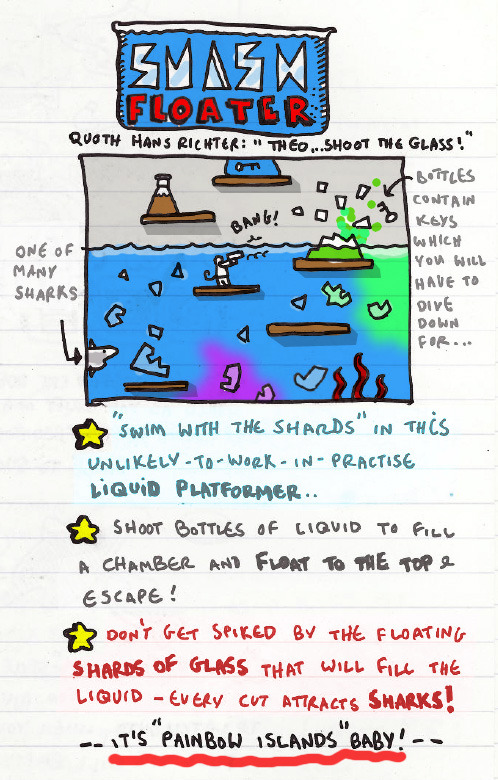 SMASH
FLOATER
QUOTH HANS RICHTER: "THEO...SHOOT THE GLASS!"
BANG!
BOTTLES
CONTAIN
KEYS
WHICH
YOU WILL
HAVE TO
DIVE
DOWN
FOR...
ONE OF
MANY
SHARKS
"SWIM WITH THE SHARDS" IN THIS
UNLIKELY-TO-WORK-IN-PRACTISE
LIQUID PLATFORMER..
SHOOT BOTTLES OF LIQUID TO FILL
A CHAMBER AND FLOAT TO THE TOP &
ESCAPE!
DON'T GET SPIKED BY THE FLOATING
SHARDS OF GLASS THAT WILL FILL THE
LIQUID - EVERY CUT ATTRACTS SHARKS!
-- IT'S "PAINBOW ISLANDS" BABY! --